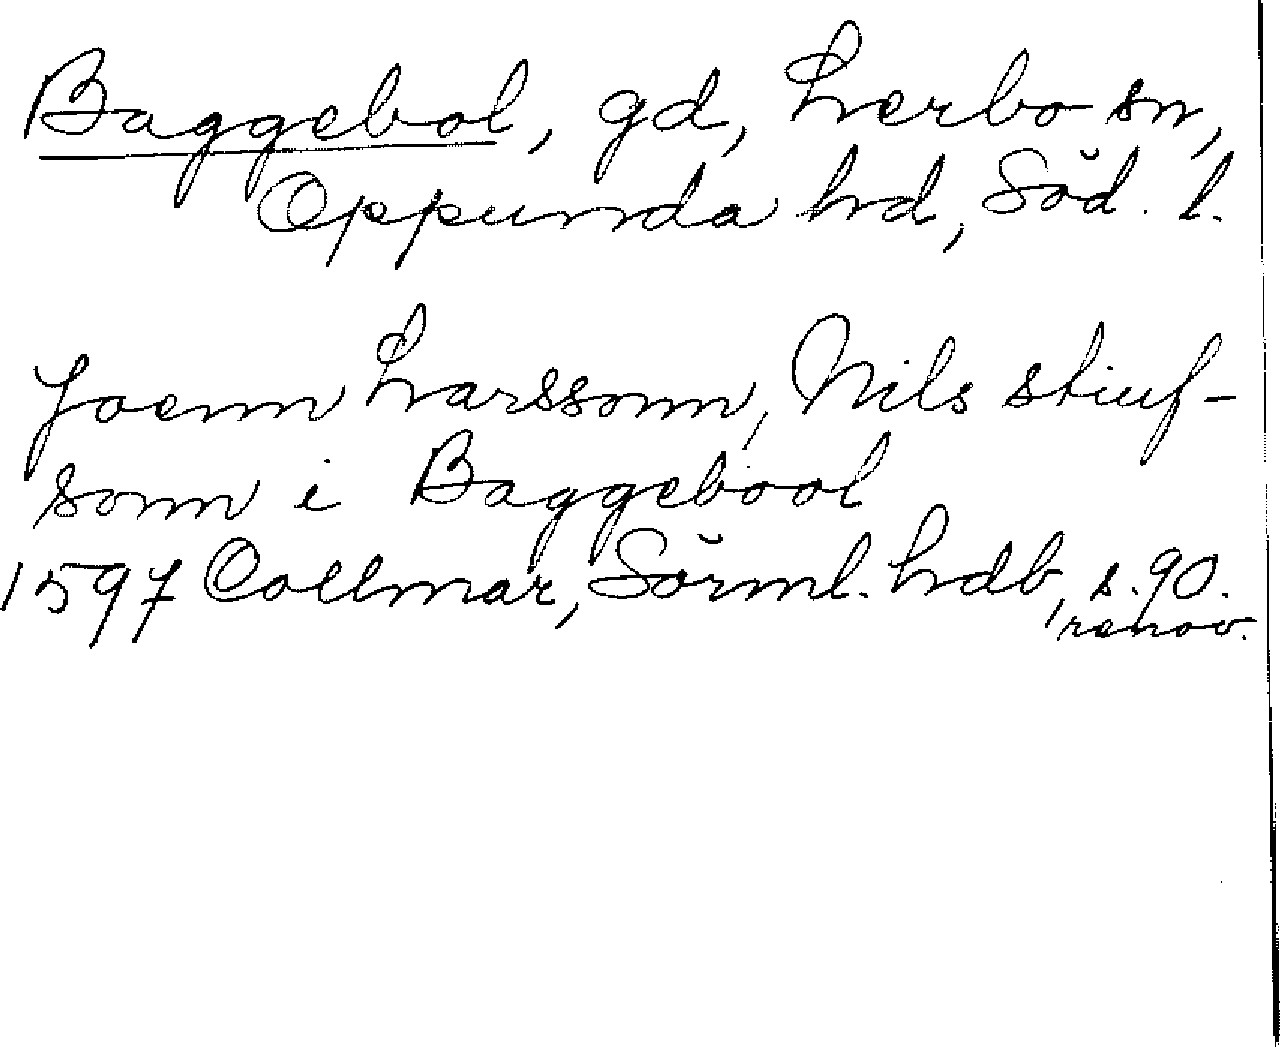 Baggebol, gd, Lerbo sn,
Oppunda hd, Söd. l.
Joenn Larssonn, Nils stiuf-
sonn i Baggebool
1597 Collmar, Sörml. hdb, s. 90.
renov.